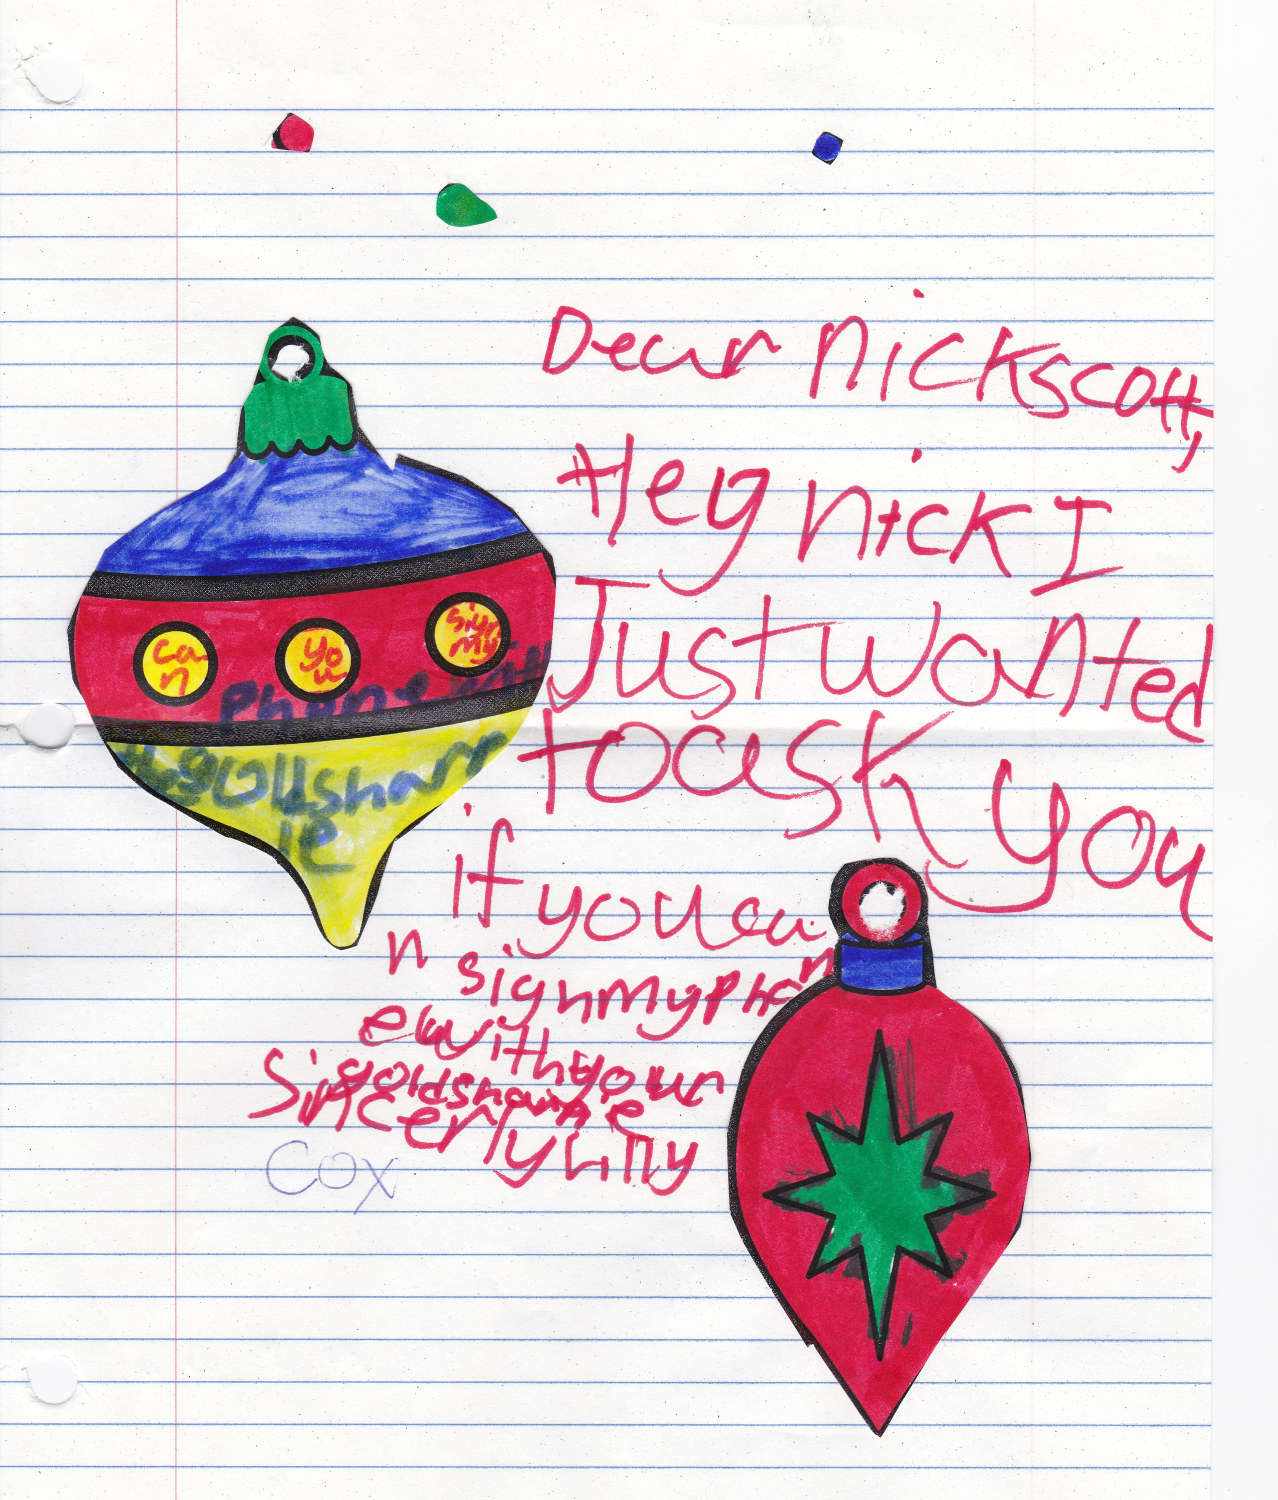 Dear nickscott,
Hey nick I
Just wanted
to ask you
if you ca
n sign my phon
e with your
gold sharpie
Sincerly Lilly
Cox
ca
n
yo
u
sign
my
Phone with
gold sharp
ie